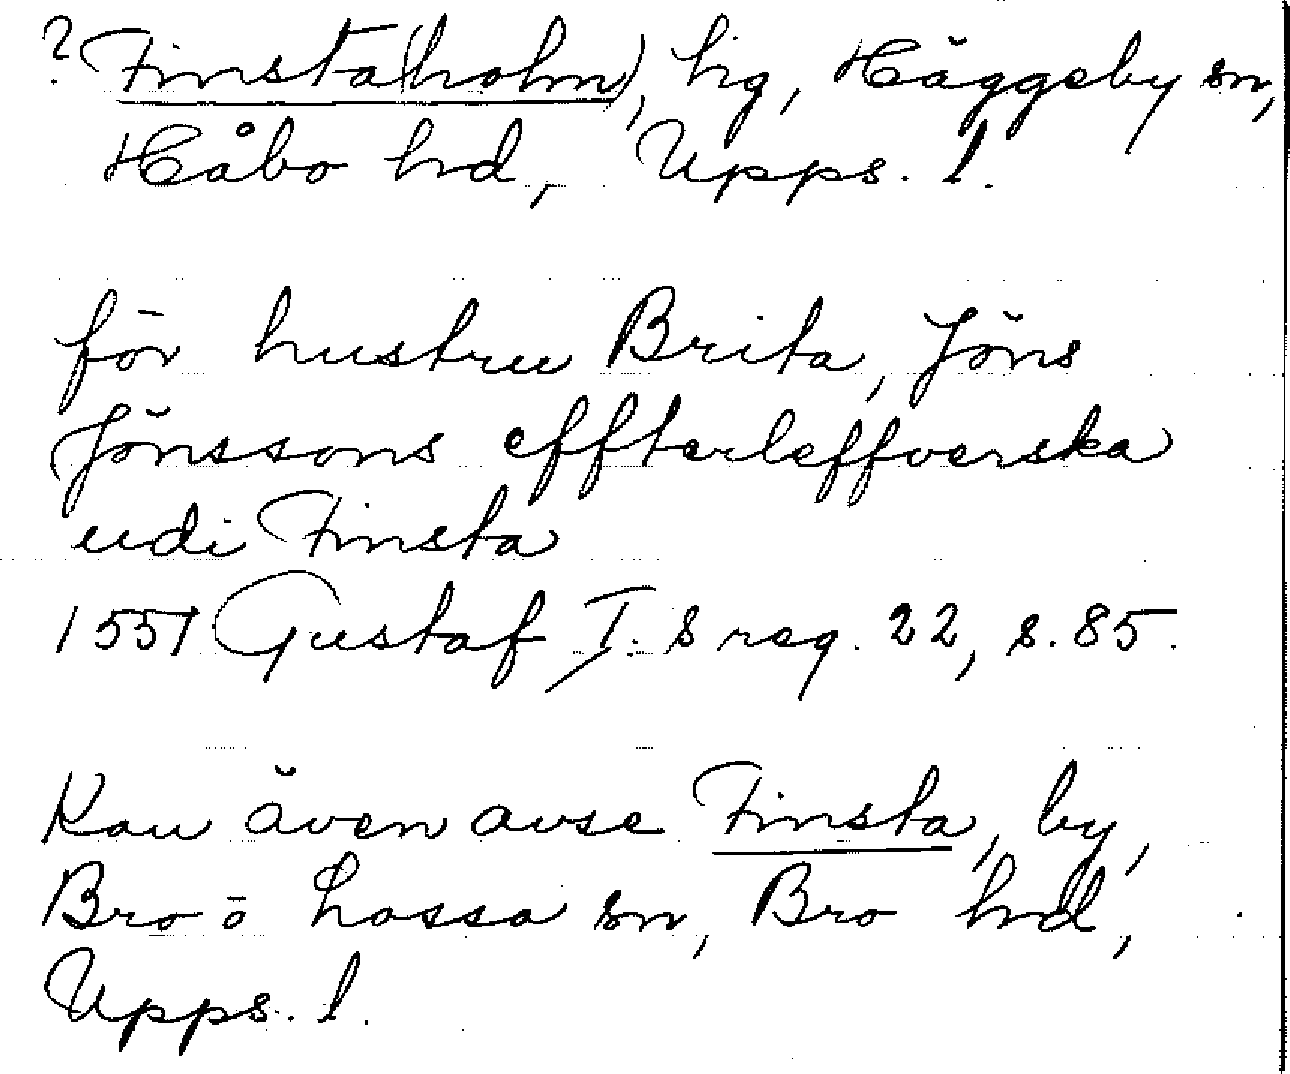 ? Finsta(holm), hg, Häggeby sn,
Håbo hrd, Upps. l.
för hustru Brita, Jöns
Jönssons effterleffverska
udi Finsta
1551 Gustaf I:s reg. 22, s. 85.
Kan även avse Finsta, by,
Bro o Lossa sn, Bro hrd,
Upps. l.